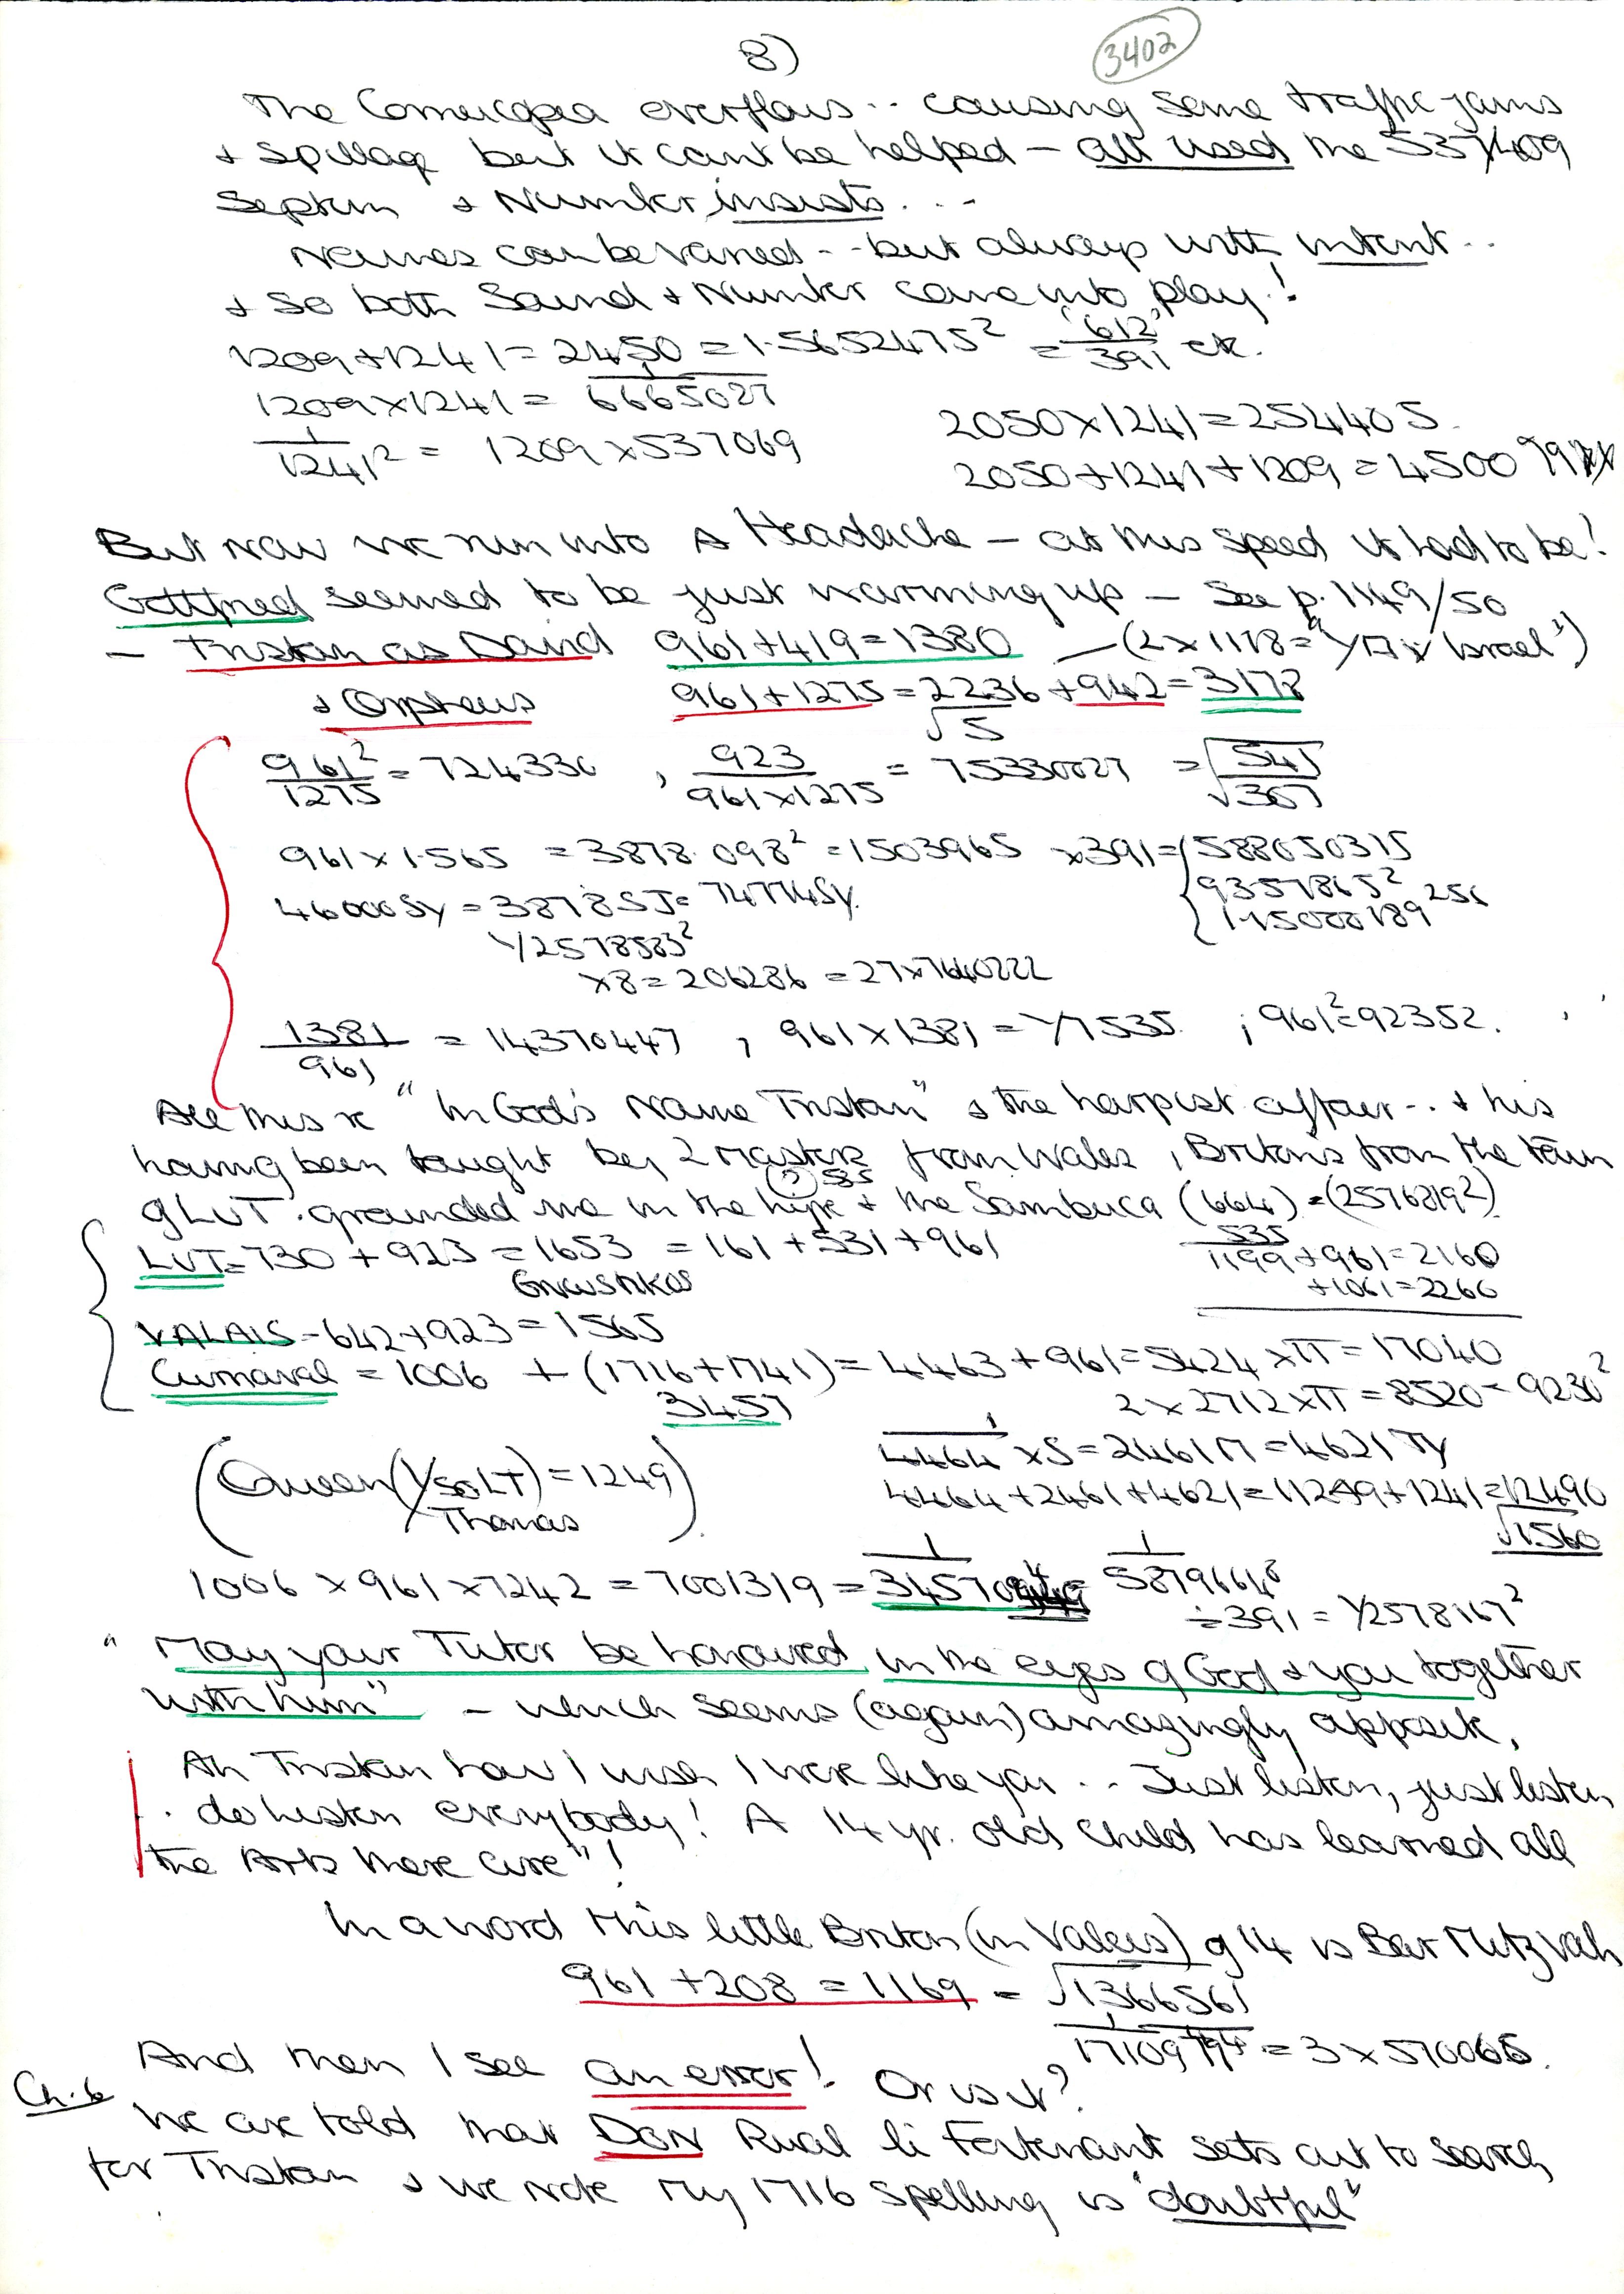 8)
3402
The Cornucopia overflows .. causing some traffic jams
& spillage but it can't be helped – all used the 537/409
Septum & Number insists . . -
Names can be varied - - but always with intent ..
& so both Sound & Number come into play !
1209 + 1241 = 2450 = 1.5652475² = '612' / 391 etc.
1209 × 1241 = 1 / 6665027
1 / 1241² = 1209 × 537069
2050 × 1241 = 254405
2050 + 1241 + 1209 = 4500
But now we run into a Headache – at this speed it had to be!
Gottfried seemed to be just warming up – See p. 1149/50
– Tristan as David 961 + 419 = 1380 – (2 × 1178 = "Y17 × Israel")
& Orpheus 961 + 1275 = 2236 + 942 = 3178
√5
961² / 1275 = 724336 , 923 / 961 × 1275 = 75330027 = √541 / √307
961 × 1.565 = 3878.098² = 1503965 × 391 = 588050315
93578165²
1.15000189 256
46000 Sy = 3878 SJ = 74774 Sy.
Y2578583²
× 8 = 206286 = 27 × 7640222
1381 / 961 = 14370447 , 961 × 1381 = Y7535 ; 961² = 92352.
All this re "In God's Name Tristan" & the harpist affair -. & his
having been taught by 2 Masters from Wales , Britons from the town
of LUT . grounded me in the lyre & the Sambuca (664) = (2576819²)
(?) 585
535
LUT = 730 + 923 = 1653 = 161 + 531 + 961
Gnwstikos
1199 + 961 = 2160
+ 1061 = 2260
VALAIS – 642 + 923 = 1565
Curnaval = 1006 + (1716 + 1741) = 4463 + 961 = 5424 × π = 17040
3457
2 × 2712 × π = 8520 = 9230²
(Queen (YsoLT) = 1249)
Thomas
1 / 4464 × S = 2461 M = 4621 Ty
4464 + 2461 + 4621 = 11249 + 1241 = 12490
√1560
1006 × 961 × 7242 = 7001319 = 1 / 34570 = 1 / 5879664⁸
÷ 391 = Y2578167²
" May your Tutor be honoured in the eyes of God & you together
with him" – which seems (again) amazingly apposite,
Ah Tristan how I wish I were like you .. Just listen, just listen
. do listen everybody! A 14 yr. old child has learned all
the Arts there are"!
In a word this little Briton (in Valais) of 14 is Bar Mitzvah
961 + 208 = 1169 = √1366561
1 / 17109 = 3 × 570066.
And then I see an error! Or is it?
Ch. 6 We are told that DAN Rual li Foitenant sets out to search
for Tristan & we note my 1716 spelling is "doubtful"